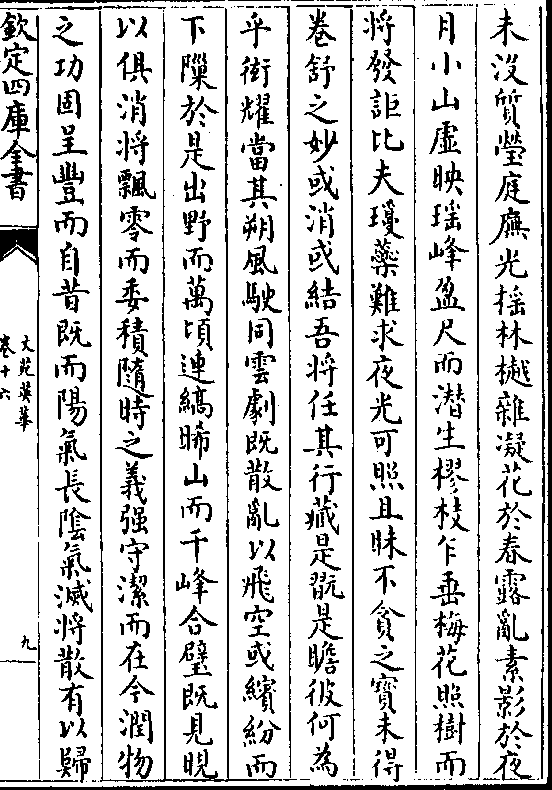 未没質瑩庭廡光揺林樾雜凝花於春露亂素影於夜
月小山虛映瑶峰盈尺而潛生樛枝乍垂梅花照樹而
將發詎比夫瓊藥難求夜光可照且昧不貪之寶未得
卷舒之妙或消或結吾將任其行藏是翫是瞻彼何為
乎衒耀當其朔風駛同雲劇既散亂以飛空或繽紛而
下隟於是出野而萬頃連縞睎山而千峰合璧既見晛
以俱消將飄零而委積隨時之義强守潔而在今潤物
之功固呈豐而自昔既而陽氣長隂氣滅將散有以歸
欽定四庫全書
文苑英華
卷十六
九